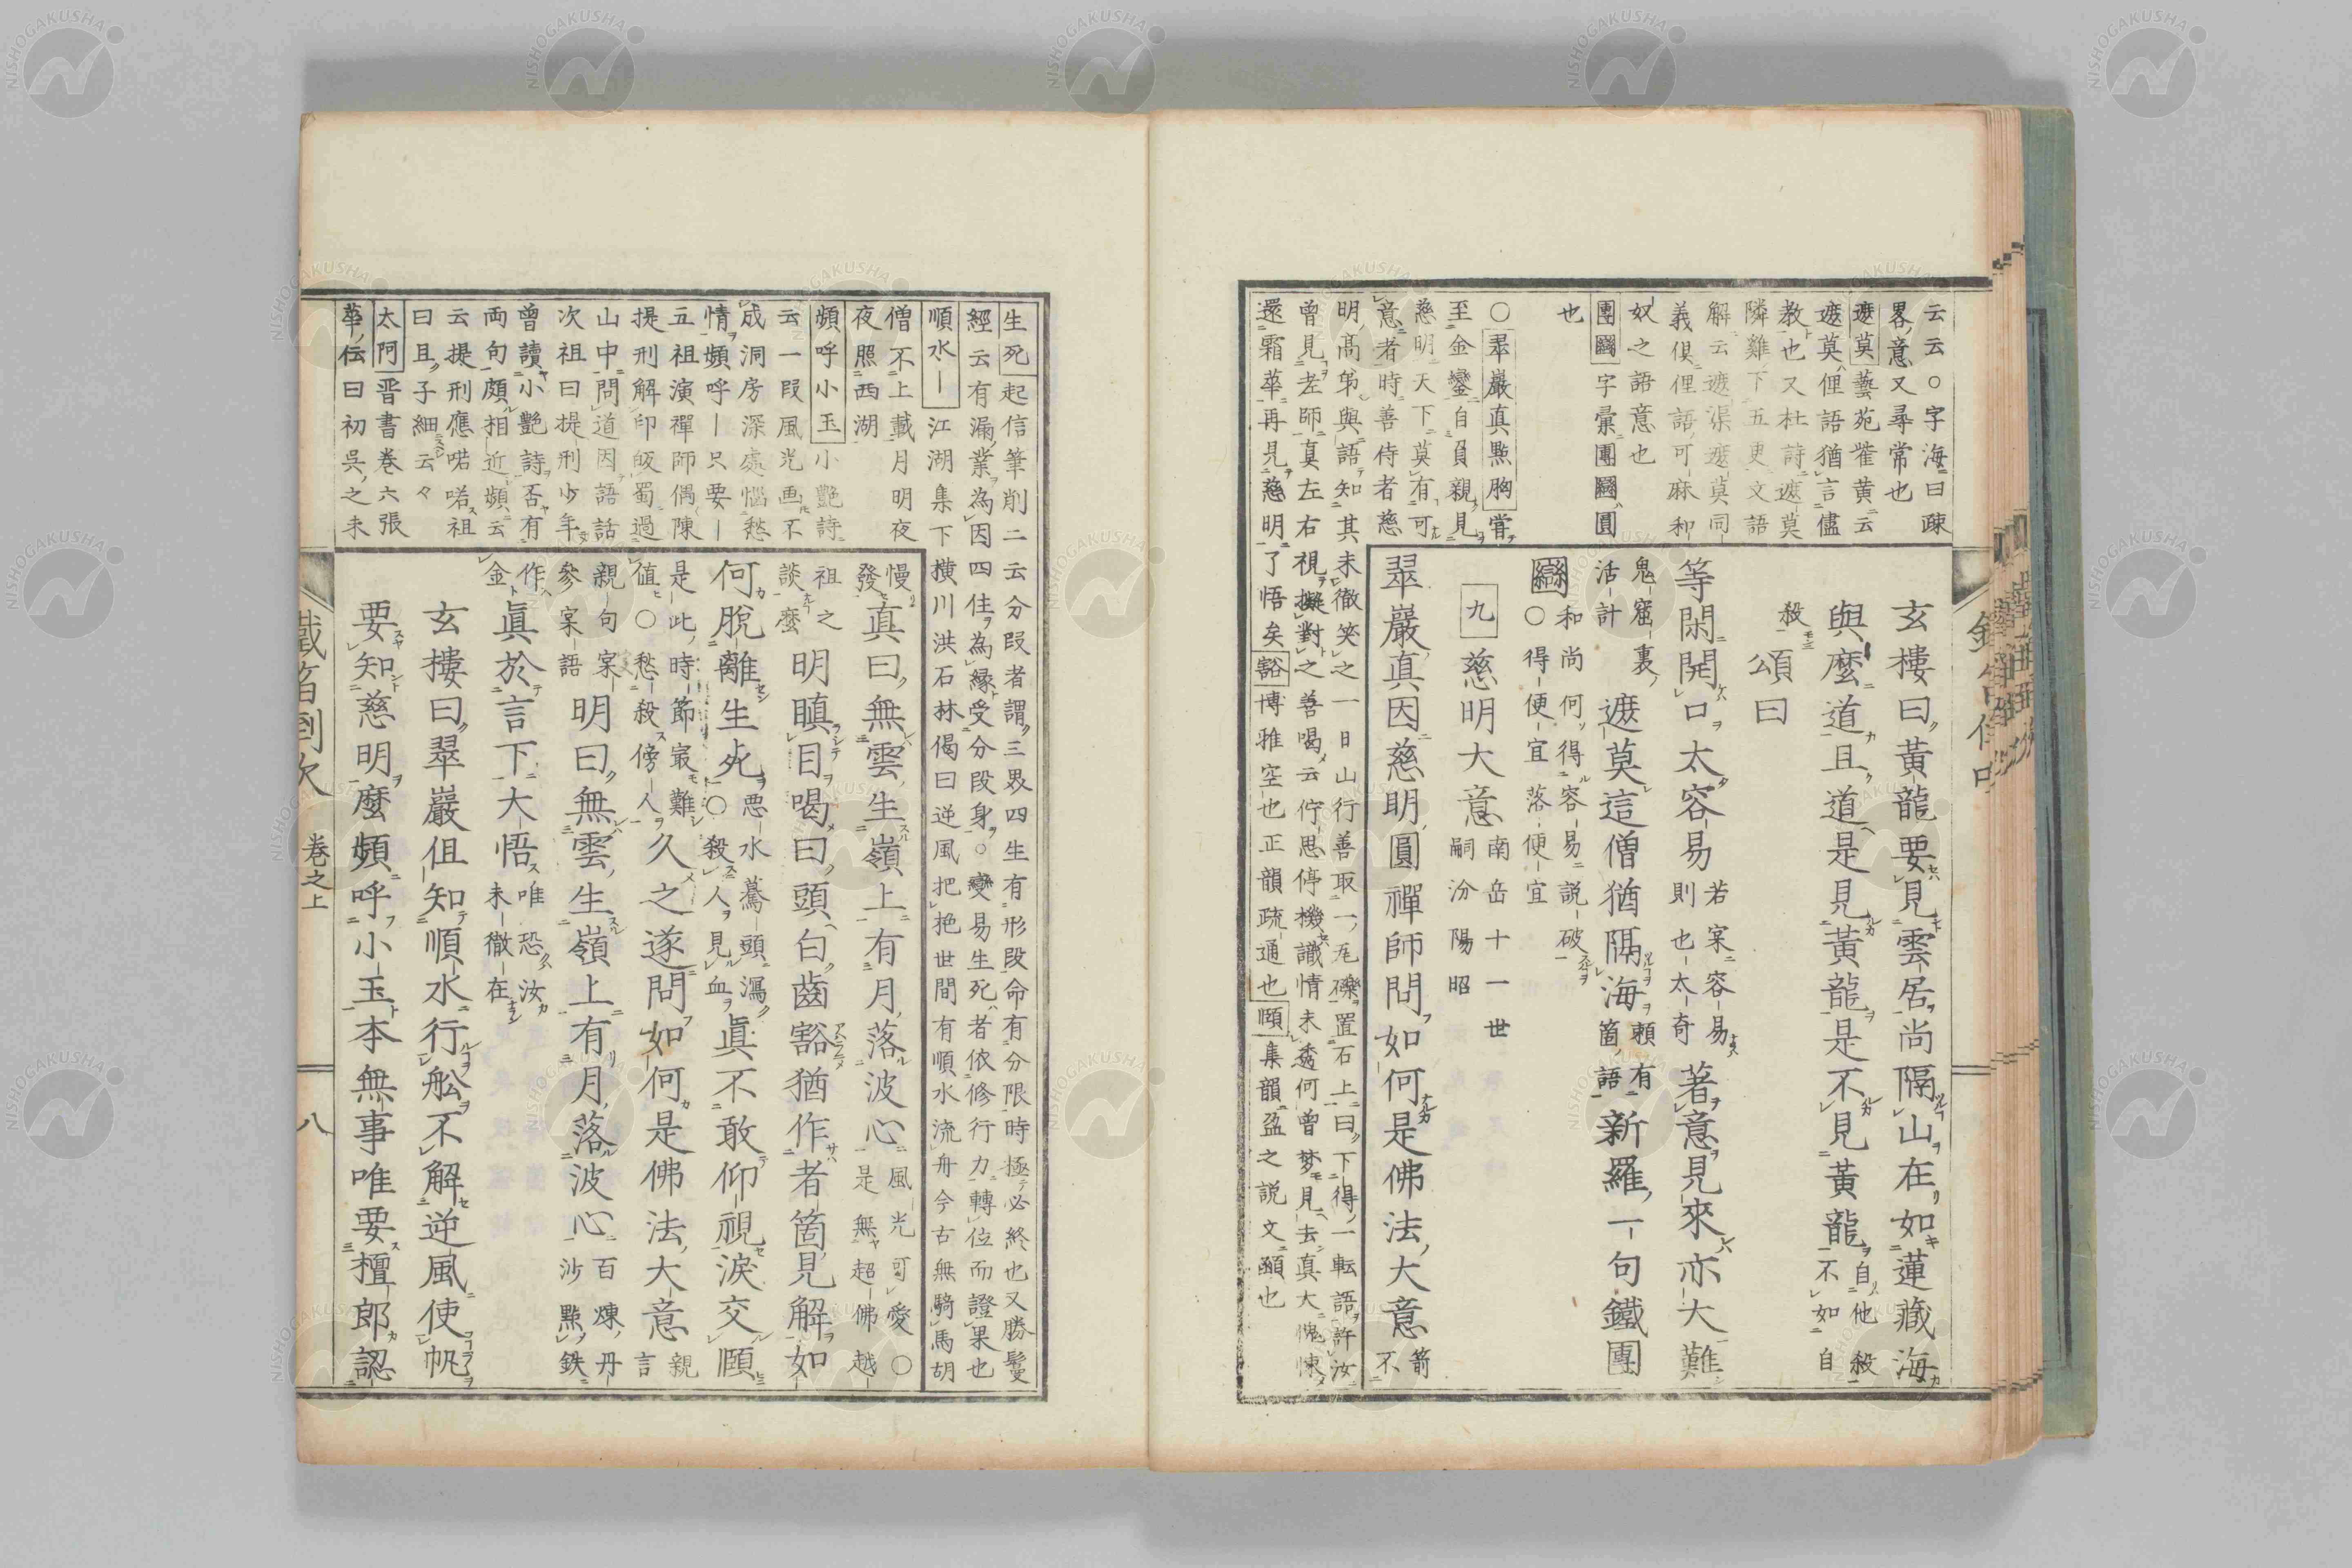 云云○字海曰疎
畧意又尋常也
遮莫藝苑雌黄云
遮莫俚語猶言儘
教也又杜詩遮莫
隣雞下五更文語
解云遮渠遮莫同
義俱俚語可麻和
奴之語意也
團圝字彙團圝圓
也
○翠巖真點胸嘗
至金鑾自負親見
慈明天下莫有可
意者時善侍者慈
明髙弟與語知其未徹笑之一日山行善取一瓦礫置石上曰下得一転語許汝
曾見老師真左右視擬對之善喝云佇思停機識情未透何曾梦見去真大愧悚
還霜華再見慈明了悟矣豁博雅空也正韻疏通也頥集韻盈之説文顄也
玄樓曰黃龍要見雲居尚隔山在如蓮藏海
與麼道且道是見黃龍是不見黃龍自他殺
不如自
殺
頌曰
等閑開口太容易若宲容易
則也太奇著意見來亦大難
鬼窟裏
活計遮莫這僧猶隔海頼有
箇語新羅一句鐵團
圝和尚何得容易説破
○得便宜落便宜
九慈明大意南岳十一世
嗣汾陽昭
翠巖真因慈明圓禪師問如何是佛法大意箭
不
生死起信筆削二云分段者謂三界四生有形段命有分限時極必終也又勝鬘
經云有漏業為因四住為縁受分段身○變易生死者依修行力轉位而證果也
順水｜江湖集下横川洪石林偈曰逆風把柂世間有順水流舟今古無騎馬胡
僧不上載月明夜
夜照西湖
頻呼小玉小艶詩
云一段風光画不
成洞房深處惱愁
情頻呼｜只要｜
五祖演禪師偶陳
提刑解印皈蜀過
山中問道因語話
次祖曰提刑少年
曾讀小艶詩否有
両句頗相近頻云
云提刑應喏喏祖
曰且子細云々
太阿晋書巻六張
華伝曰初呉之未
慢
發真曰無雲生嶺上有月落波心風光可愛○
是無超佛越
祖之
談麼明瞋目喝曰頭白齒豁猶作者箇見解如
何脱離生死悪水驀頭瀉
○殺人見血眞不敢仰視淚交頥
是此時節㝡難
値○愁殺傍人久之遂問如何是佛法大意親
言
親句宲
參宲語明曰無雲生嶺上有月落波心百煉丹
沙點鉄
作
金眞於言下大悟唯恐汝
未徹在
玄樓曰翠巖但知順水行舩不解逆風使帆
要知慈明麼頻呼小玉本無事唯要檀郎認
鐵笛倒吹
卷之上
八